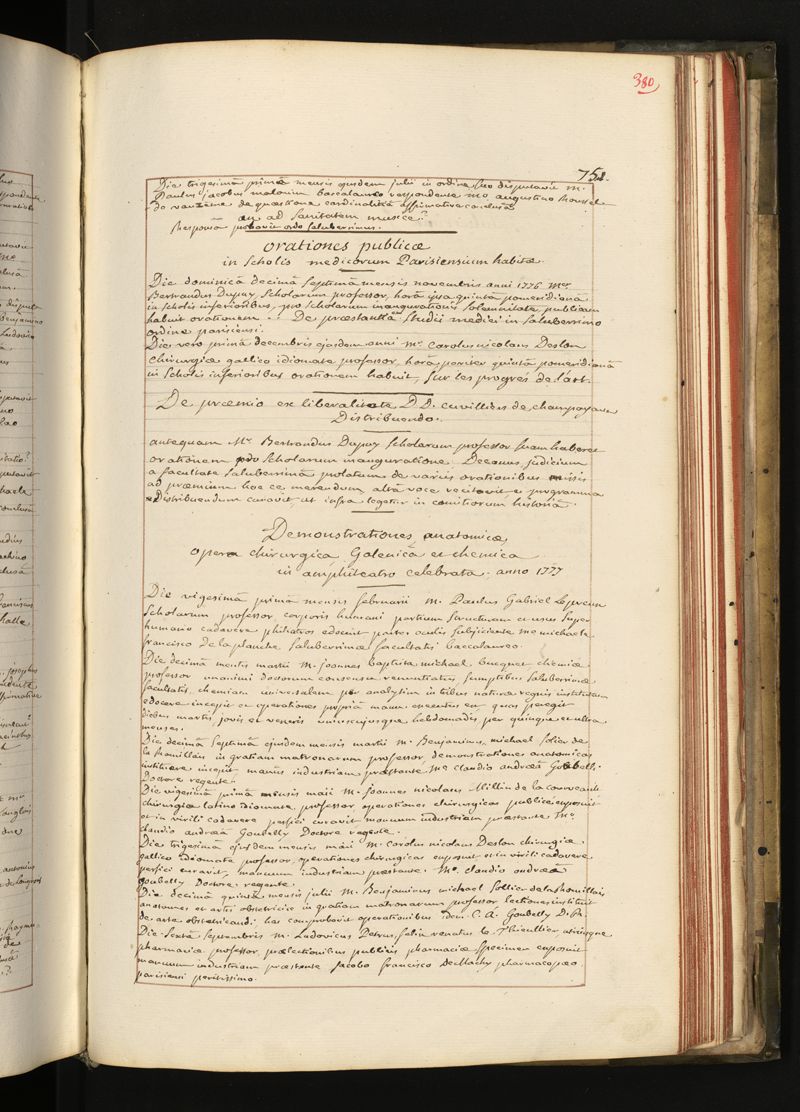 380
751.
Die trigesimâ primâ mensis ejusdem julii in ordine suo disputavit M.
Paulus jacobus malouin baccalaureo respondente mo augustino Roussel
de vauzeme de quaestione cardinalitiâ affirmative conclusâ
an ad Sanitatem musice?
Responsa probavit ordo Saluberrimus.
orationes publicæ
in Scholis medicorum Parisiensium habitæ
Die dominicâ decimâ Septimâ mensis novembris anni 1776 Mer
Bertrandus Dupuy Scholarum professor, horâ ipsa quinta pomeridianâ
in scholis inferioribus, pro Scholarum inaugurationis Solemnitate publicam
habuit orationem. De præstantiâ Studii medici in Saluberrimo
ordine parisiensi.
Die vero primâ decembris ejusdem anni Mr. carolus nicolaus Deslon
chirurgiæ gallico idiomate professor, horâ pariter quintâ pomeridianâ
in Scholis inferioribus orationem habuit, Sur les progrès de l'art.
De præmio ex liberalitate D.D. cuvilliers de champoyaux
Distribuendo.
antequam Mr Bertrandus Dupuy Scholarum professor Suam haberet
orationem pro Scholarum inauguratione. Decanus judicium
a facultate Saluberrimâ prolatum de variis orationibus missis
ad præmium hoc ce merendum altâ voce recitavit et programma
Distribuendum curavit, ut infra legetur in comitiorum historiâ.
Demonstrationes anatomicæ
opera chirurgica Galenica et chemica
in amphiteatro celebrata, anno 1777
Die vigesimâ primâ mensis februarii M. Paulus Gabriel Lepreux
Scholarum professor, corporis humani partium Structuram et usus Super
humano cadavere philiatros edocuit partes oculis Subjiciente Mo michaele
francisco de la planche Saluberrimæ facultatis baccalaureo.
Die decimâ mensis martii M. joannes baptista michael bucquet chemiæ
professor unanimi doctorum consensu renuntiatus, Sumptibus Saluberrimæ
facultatis, chemiam universalem per analysim in tribus naturæ regnis institutam
edocere incepit et operationes propriâ manu exequutus est quas peregit
diebus martis, jovis et veneris uniuscujusque hebdomadis per quinque et ultra
menses.
Die decimâ Septimâ ejusdem mensis martii M. Benjaminus michael Solier de
la Romillais in gratiam matronarum professor, demonstrationes anatomicas
instituere incepit manûs industriam præstante Mo claudio andreâ Goubelly
Doctore regente.
Die vigesimâ primâ mensis maii M. joannes nicolaus Millin de la courveault
chirurgiæ latino idiomate, professor, operationes chirurgicas publice exposuit
et in virili cadavere perfici curavit manuum industriam præstante Mo
claudio andreâ Goubelly Doctore regente.
Die trigesimâ ejusdem mensis maii M. carolus nicolaus Deslon chirurgiæ
gallico idiomate professor, operationes chirurgicas exposuit et in virili cadavere
perfici curavit, manuum industriam præstante Mo. claudio andreâ
Goubelly Doctore regente.
Die decimâ quintâ mensis julii M. Benjaminus michael Sollier de la Romillais
anatomes et artis obstetriciæ in gratiam matronarum professor lectiones instituit
de arte obstetricandi, has comprobavit operationibus Dom. C. A. Goubelly D. P.
Die Sextâ Septembris M. Ludovicus Petrus felix renatus le Thieullier utriusque
pharmaciæ professor prælectionibus publicis pharmaciæ Specimen exposuit
manuum industriam præstante Jacobo francisco DeMachy pharmacopæo
parisiensi peritissimo.